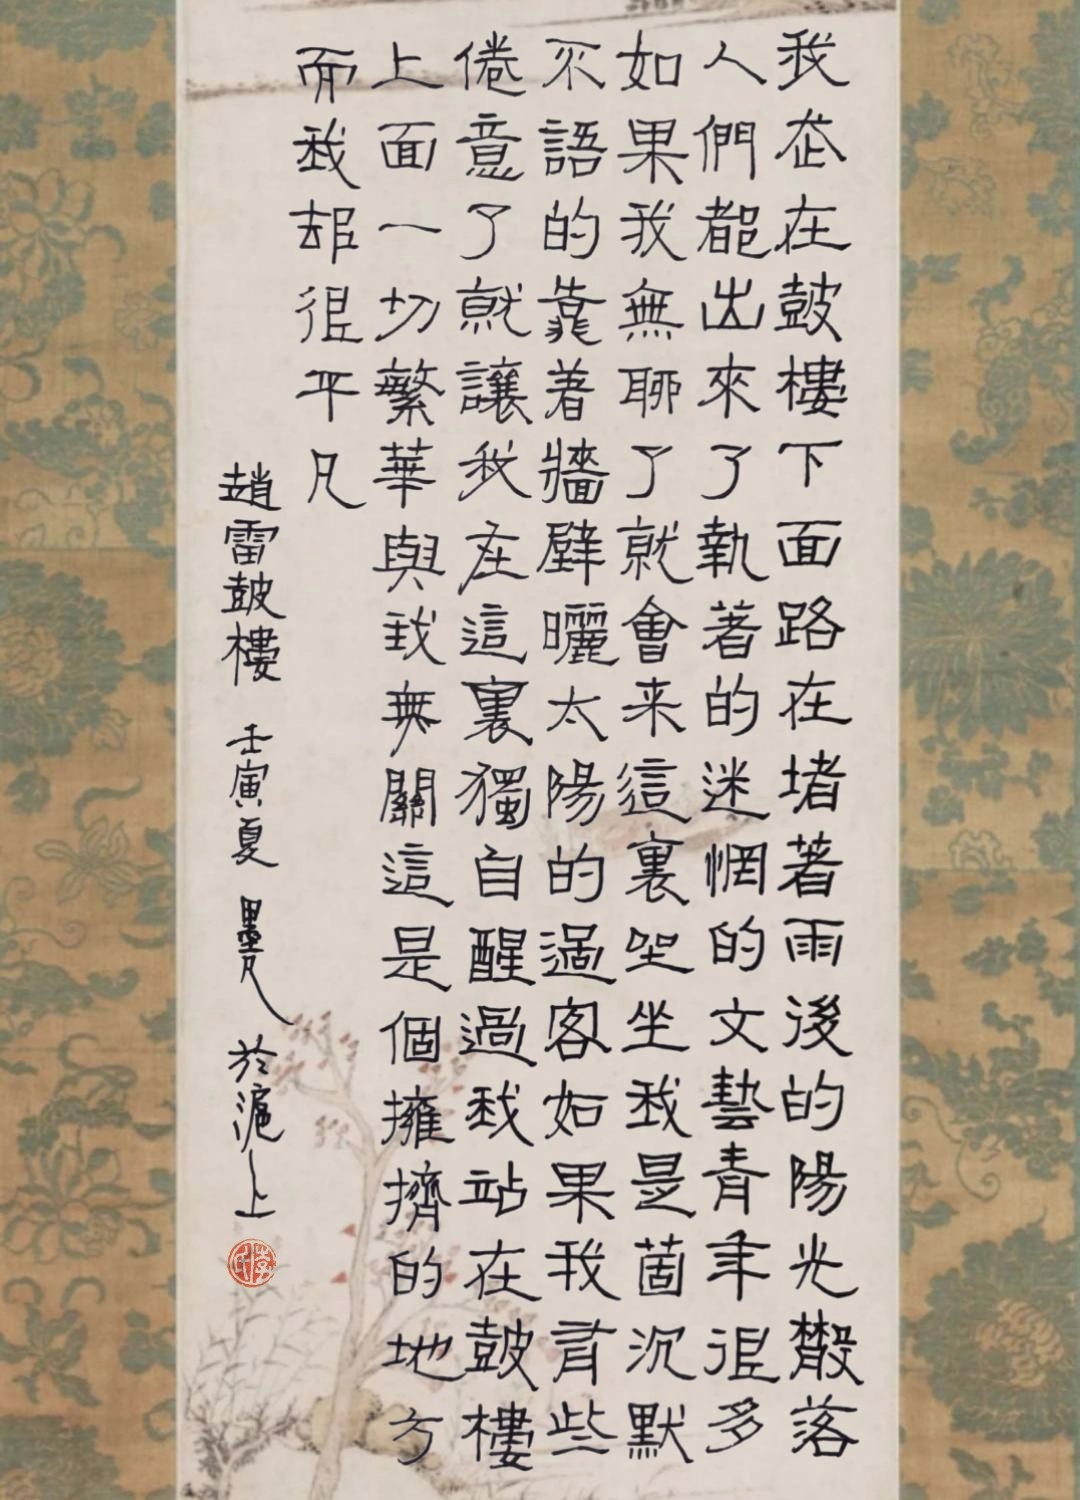 我企在鼓樓下面路在堵著雨後的陽光散落
人們都出來了執著的迷惘的文藝青年很多
如果我無聊了就會来這裏坐坐我是箇沉默
不語的靠著牆壁曬太陽的過客如果我有些
倦意了就讓我在這裏獨自醒過我站在鼓樓
上面一切繁華與我無關這是個擁擠的地方
而我却很平凡
趙雷鼓樓 壬寅夏 墨凡 於滬上
李氏